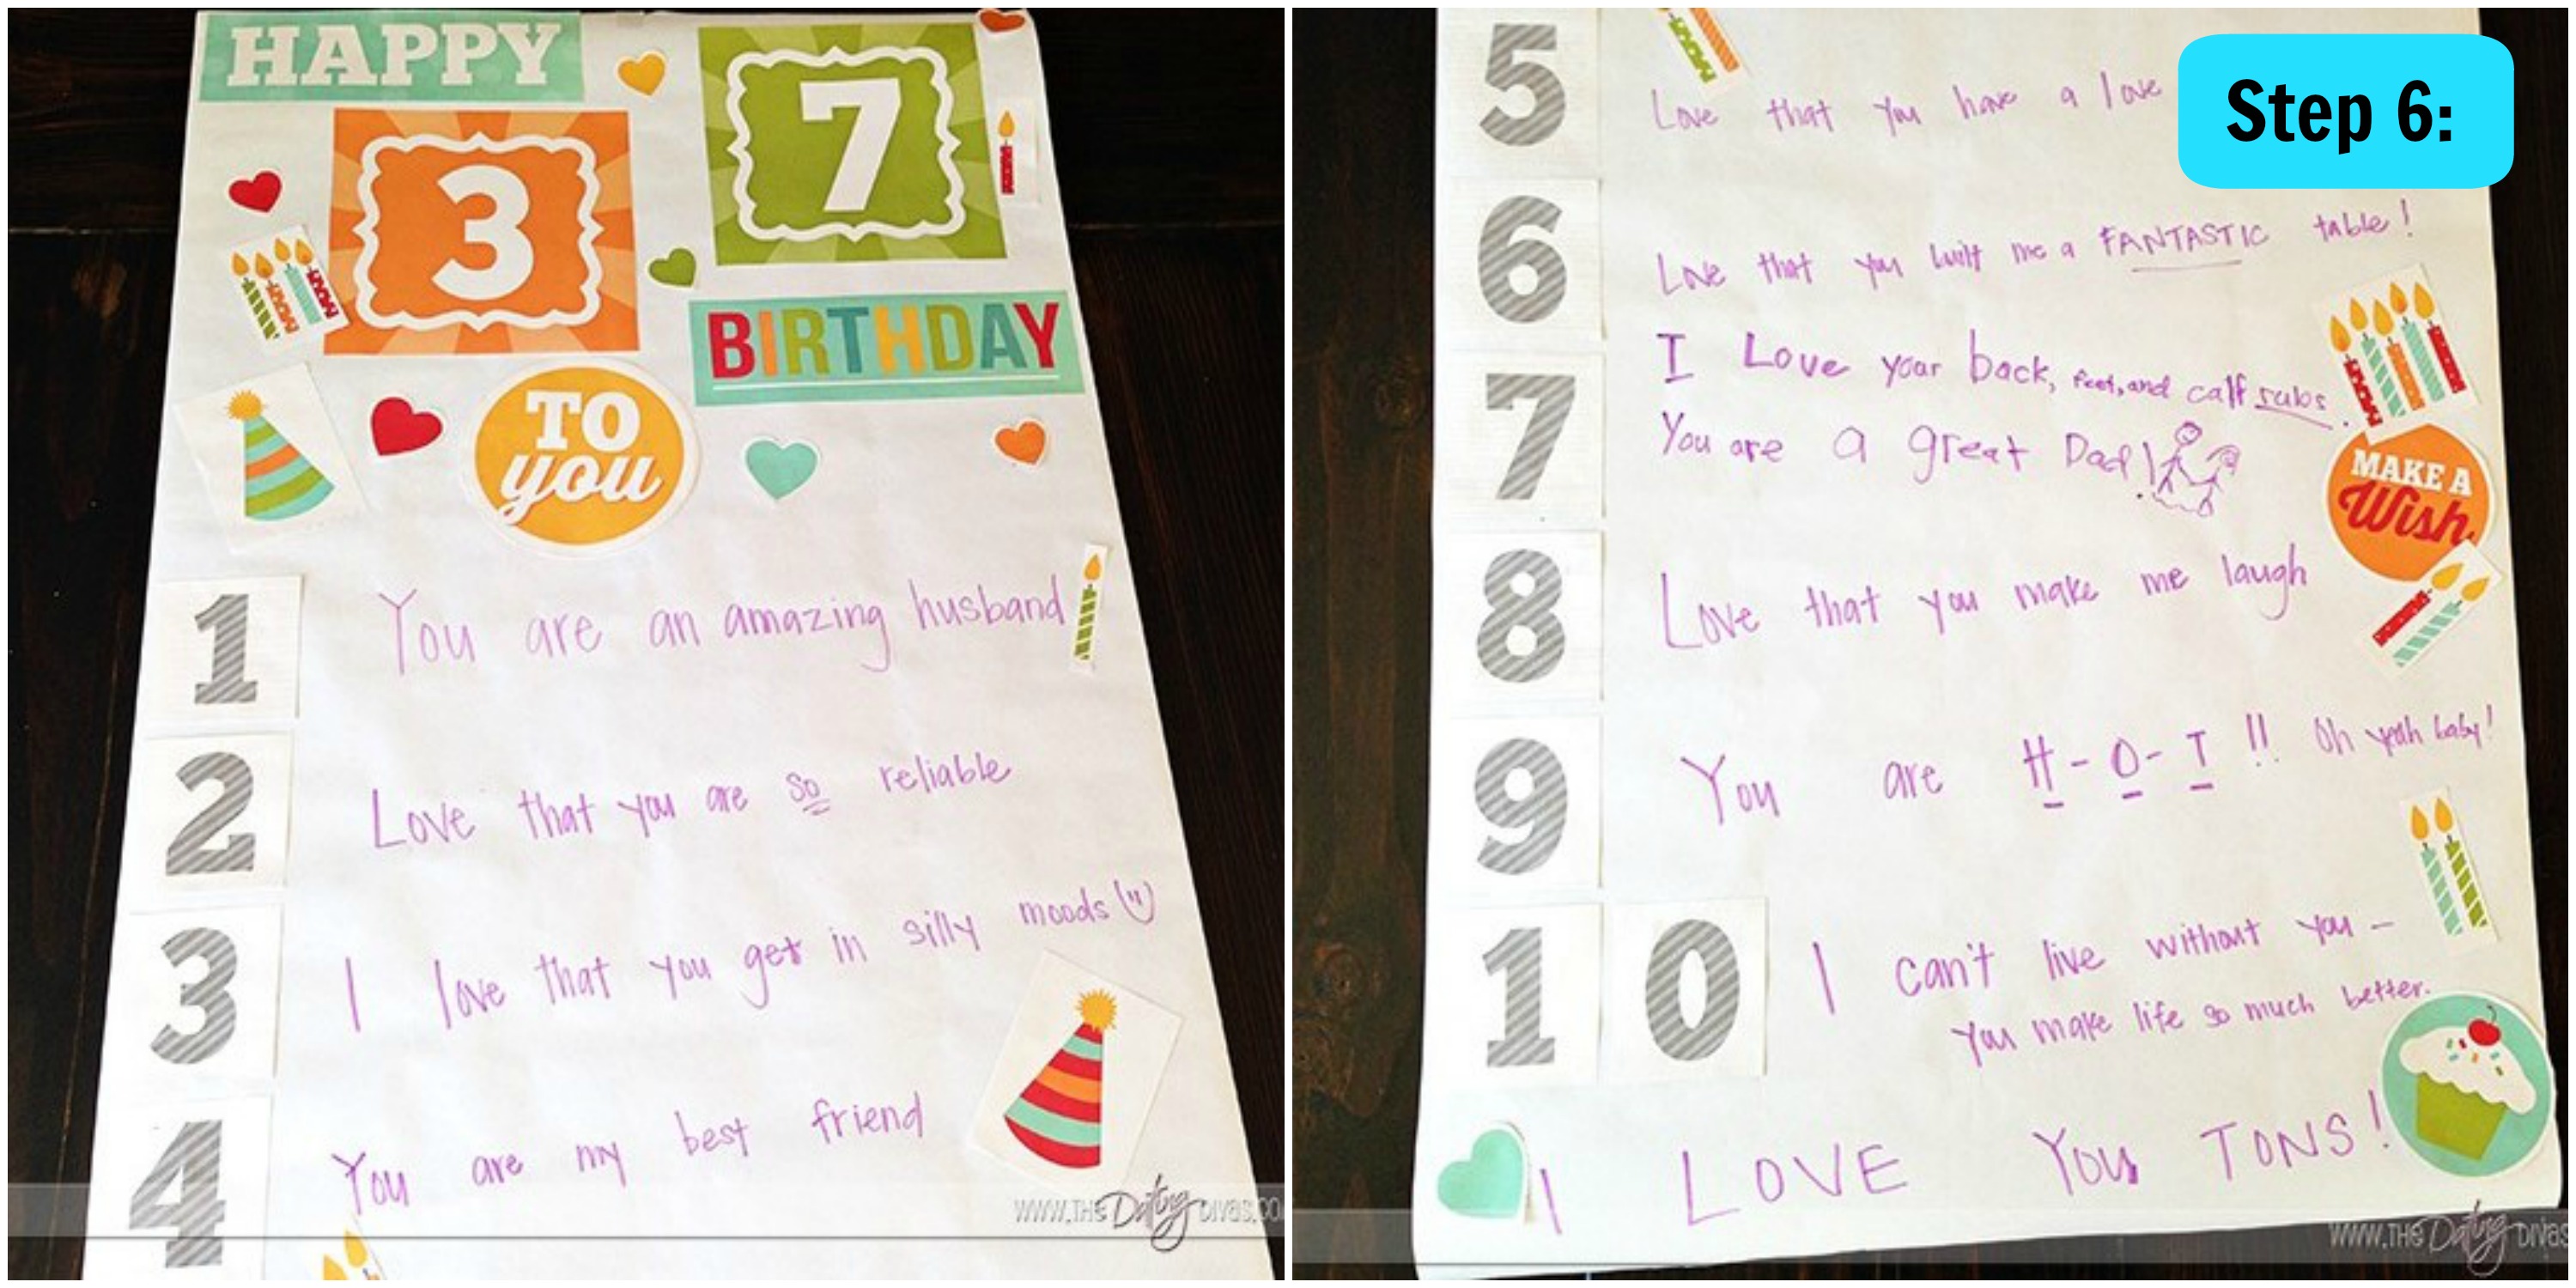 HAPPY
3
7
BIRTHDAY
TO
you
1 You are an amazing husband
2 Love that you are so reliable
3 I love that you get in silly moods
4 You are my best friend
WWW.THE Dating DIVAS.CO
Step 6:
5 Love that you have a love
6 Love that you built me a FANTASTIC table!
7 I Love your back, feet, and calf rubs.
You are a great Dad!
MAKE A
Wish
8 Love that you make me laugh
9 You are H-O-T!! Oh yeah baby!
10 I can't live without you -
You make life so much better.
I LOVE You TONS!
WWW.THE Dating DIVAS